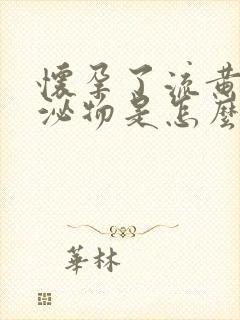 懷孕了流黃
泌物是怎麼
華林